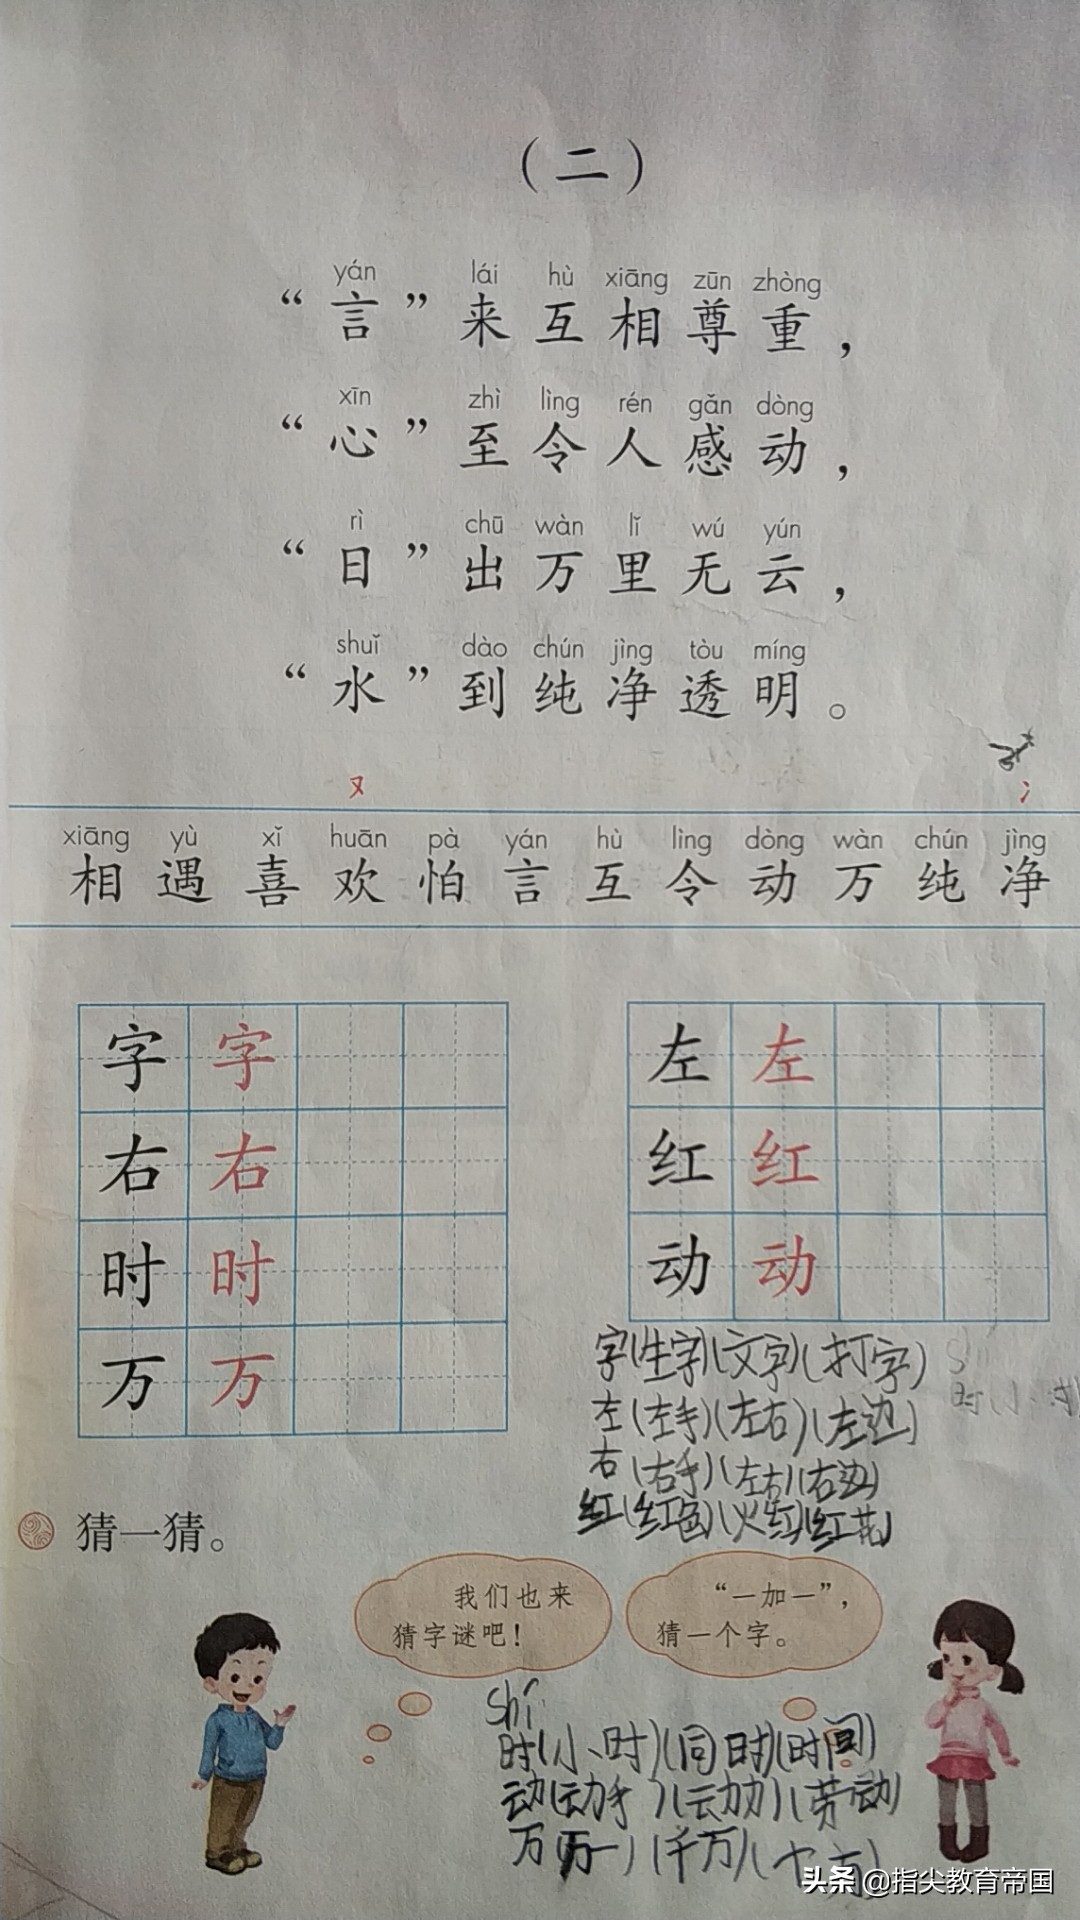 （二）
yán lái hù xiāng zūn zhòng
“言”来互相尊重，
xīn zhì lìng rén gǎn dòng
“心”至令人感动，
rì chū wàn lǐ wú yún
“日”出万里无云，
shuǐ dào chún jìng tòu míng
“水”到纯净透明。
又 冫
xiāng yù xǐ huān pà yán hù lìng dòng wàn chún jìng
相遇喜欢怕言互令动万纯净
字 字
左 左
右 右
红 红
时 时
动 动
万 万
字(生字)(文字)(打字)
左(左手)(左右)(左边)
右(右手)(左右)(右边)
红(红色)(火红)(红花)
猜一猜。
我们也来
猜字谜吧！
“一加一”，
猜一个字。
shí
时(小时)(同时)(时间)
动(动手)(运动)(劳动)
万(万一)(千万)(
头条 @指尖教育帝国